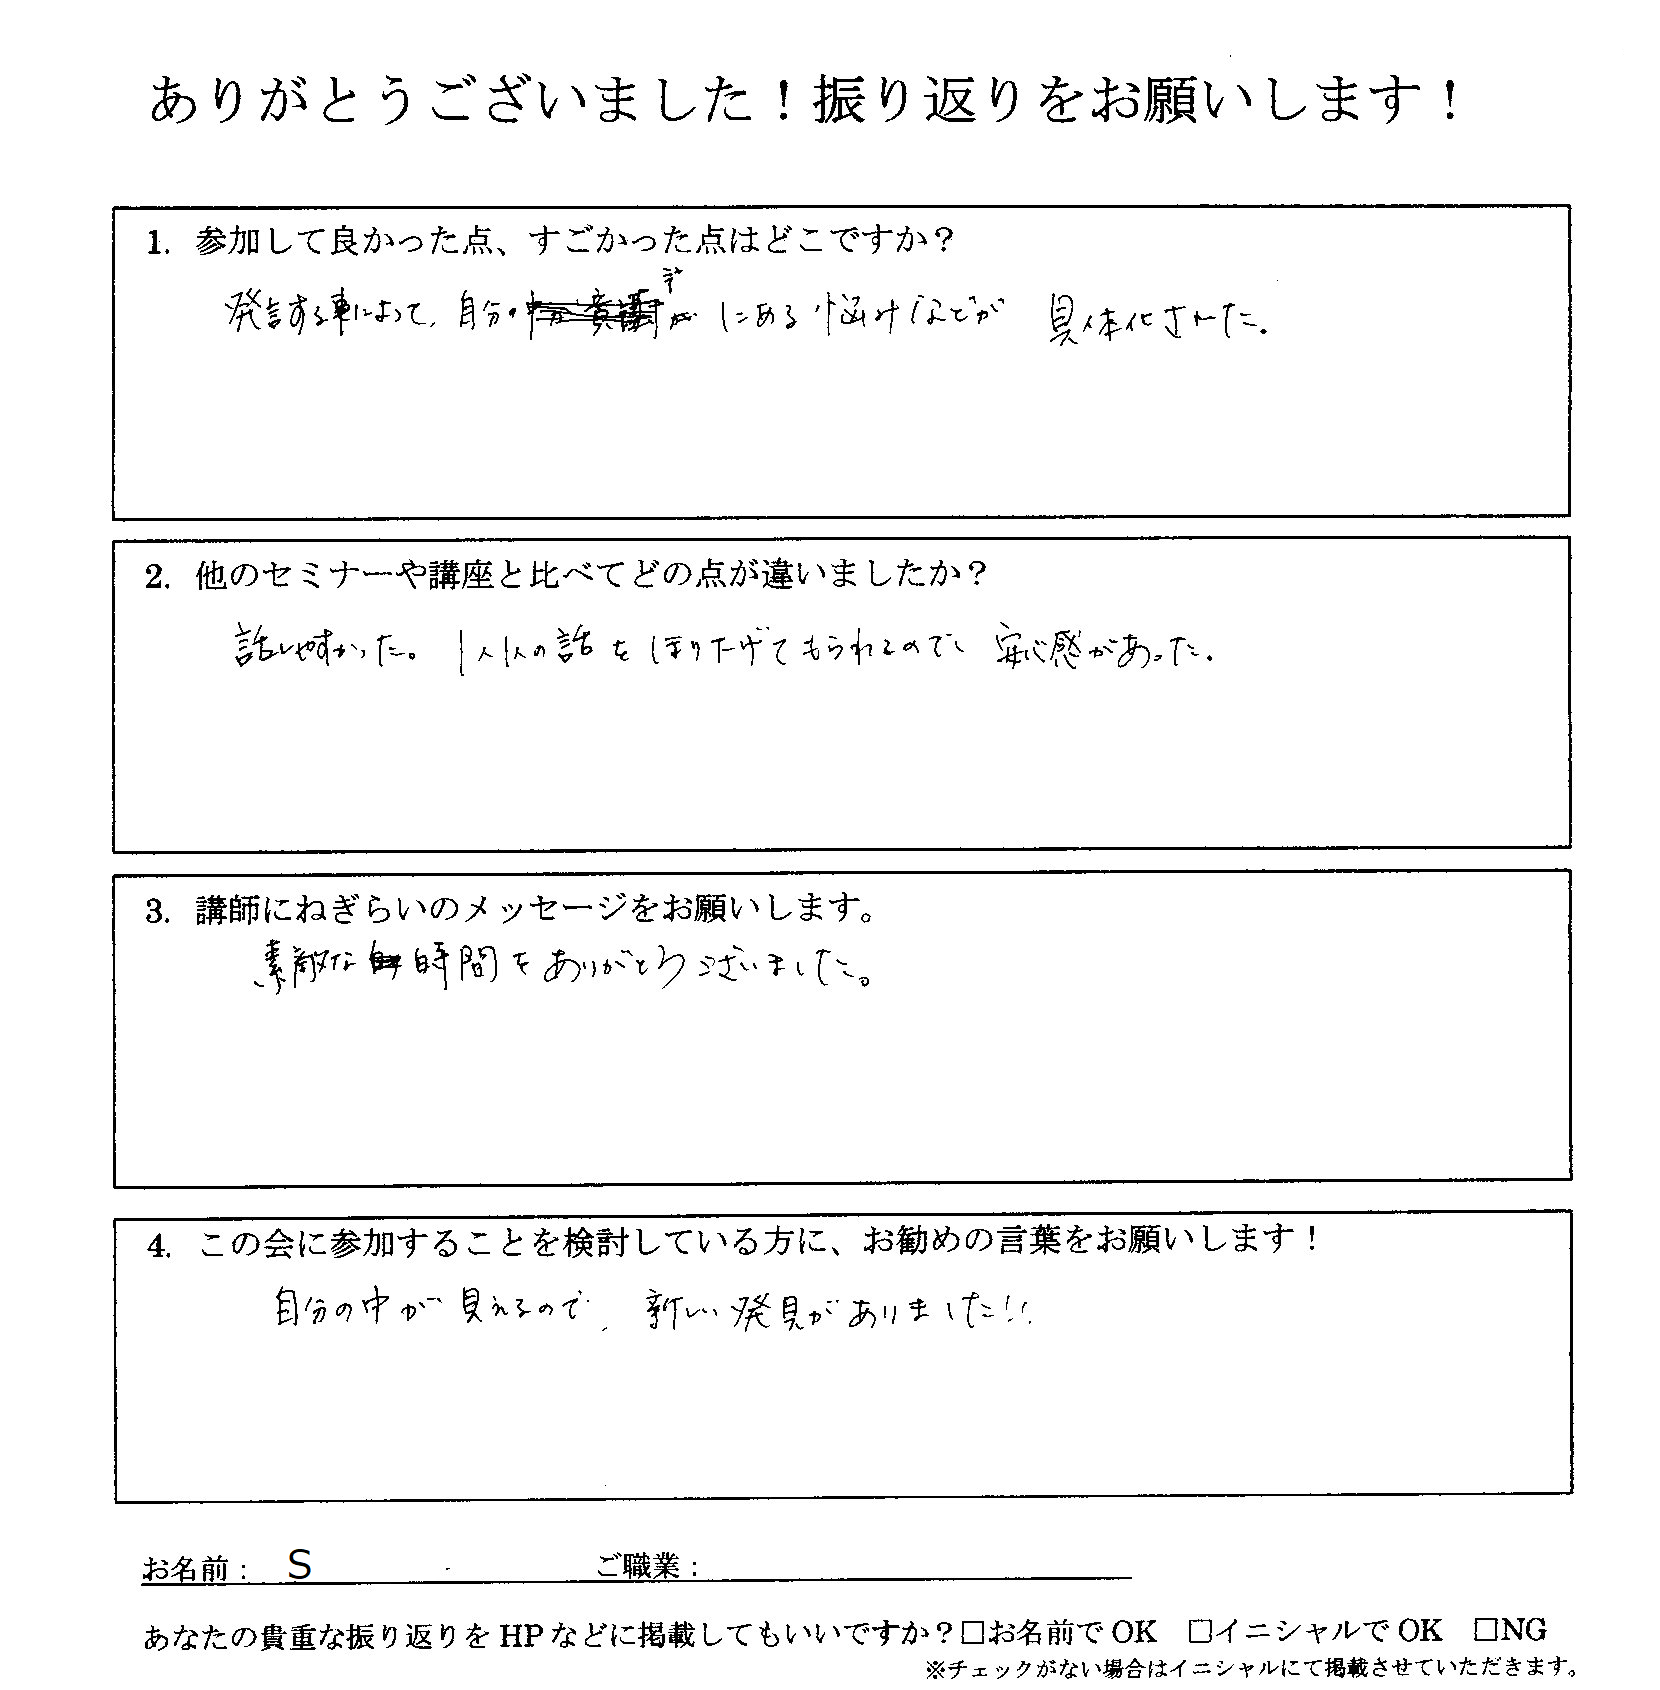 ありがとうございました！振り返りをお願いします！
1. 参加して良かった点、すごかった点はどこですか？
発言する事によって、自分の にある悩みなどが 具体化された。
2. 他のセミナーや講座と比べてどの点が違いましたか？
話しやすかった。1人1人の話をほり下げてもらえるので、安心感があった。
3. 講師にねぎらいのメッセージをお願いします。
素敵な時間をありがとうございました。
4. この会に参加することを検討している方に、お勧めの言葉をお願いします！
自分の中が見えるので、新しい発見がありました!!
お名前： S ご職業：
あなたの貴重な振り返りを HP などに掲載してもいいですか？□お名前で OK □イニシャルで OK □NG
※チェックがない場合はイニシャルにて掲載させていただきます。